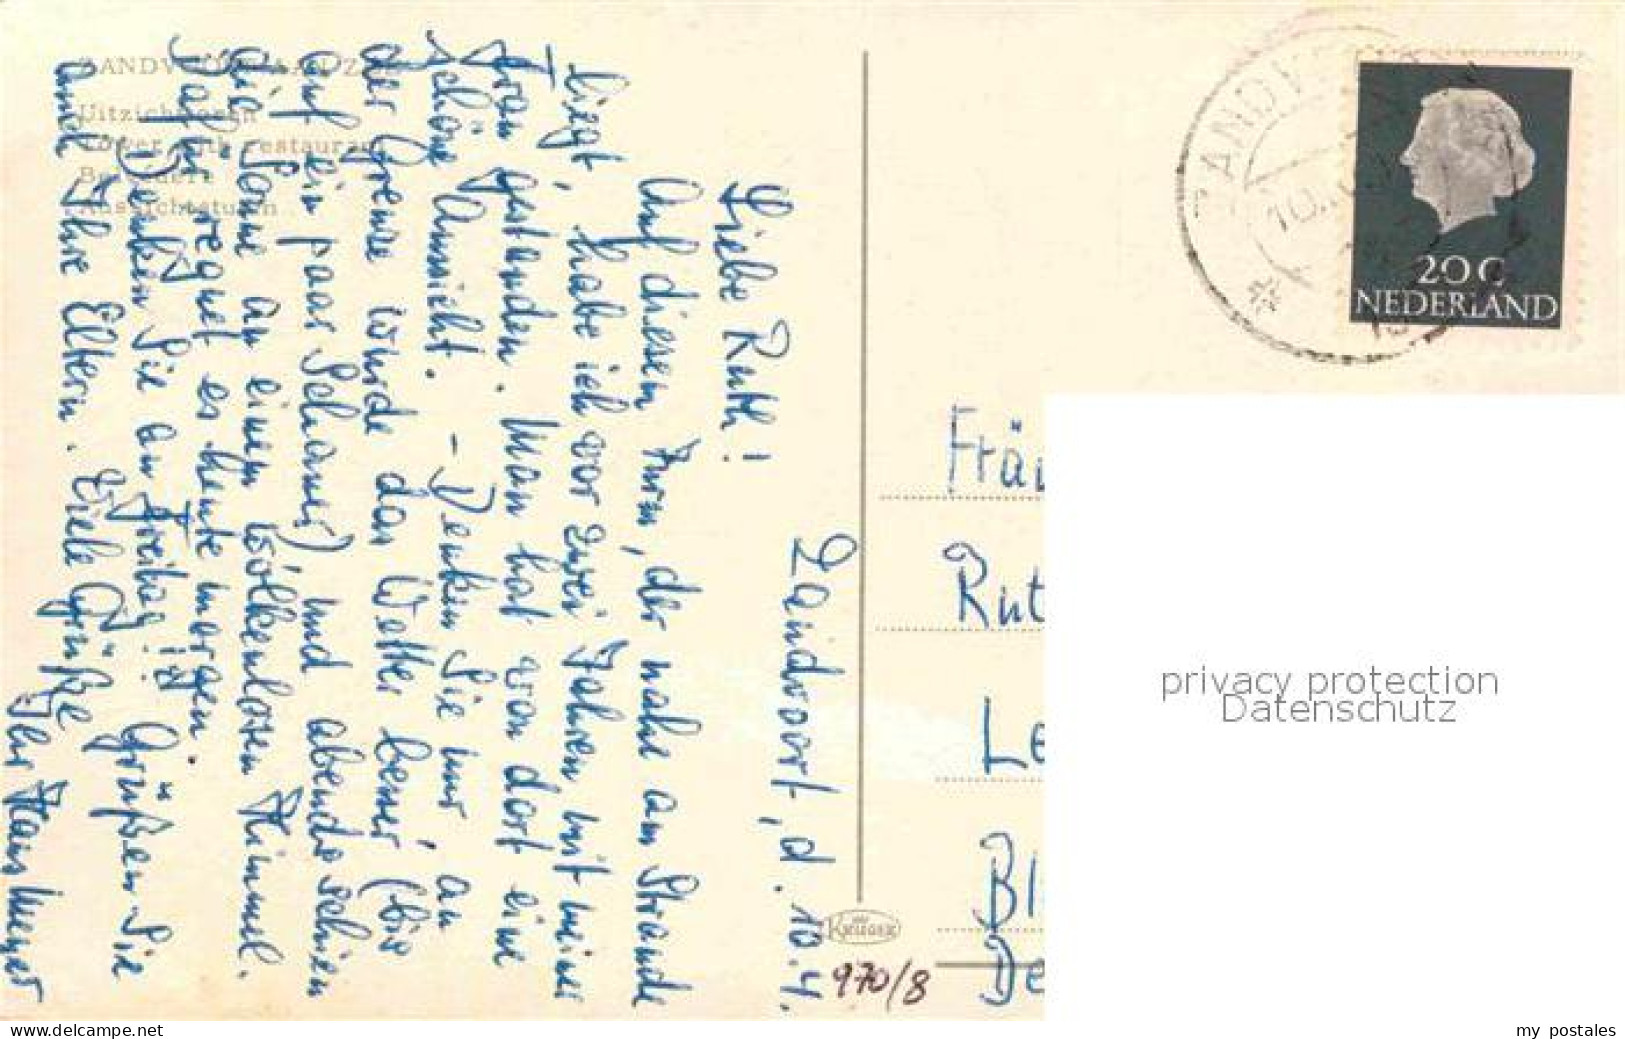 ZANDVOORT AAN ZEE
Uitzichttoren
Tower with restaurant
Belvédère
Aussichtsturm
Zandvoort, d. 10.4.
Liebe Ruth!
Auf diesem Turm, der nahe am Strande
liegt, habe ich vor zwei Jahren mit meiner
Frau gestanden. Man hat von dort eine
schöne Aussicht. – Denken Sie nur, an
der Grenze wurde das Wetter besser (bis
auf ein paar Schauer) und abends schien
die Sonne an einem wolkenlosen Himmel.
Dafür regnet es heute morgen.
Denken Sie an Freitag!! Grüßen Sie
auch Ihre Eltern. Viele Grüße
Ihr Hans Meyer
KRÜGER
970/8
ZANDVOORT
20 C
NEDERLAND
Fräu
Rut
Le
Bl
De
privacy protection
Datenschutz
delcampe.net
my postales